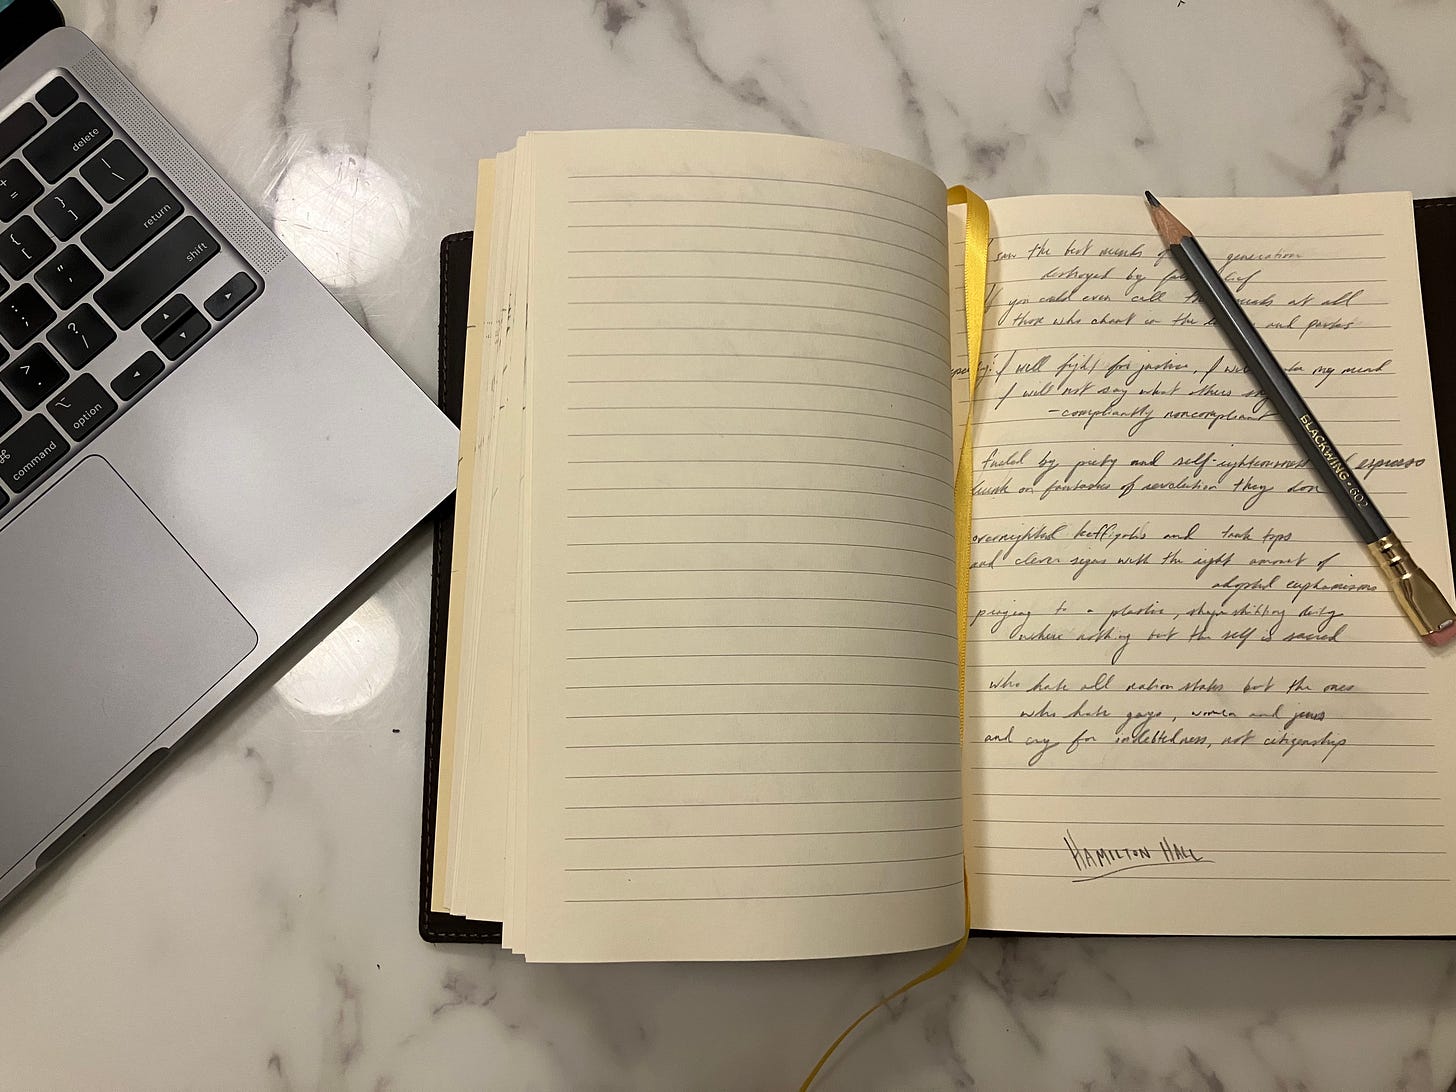 delete
+
=
}
]
|
\
return
{
[
"
'
shift
:
;
?
/
>
.
option
command
saw the best minds of generation
destroyed by
If you could even call the minds at all
those who chant in the and parks
I will fight for justice, I my mind
I will not say what others
-compliantly noncompliant
fueled by piety and self-righteousness espresso
drunk on fantasies of revolution they don
overnighted keffiyehs and tank tops
and clever signs with the right amount of
adopted euphemisms
praying to a plastic, shapeshifting deity
where nothing but the self is sacred
who hate all nation states but the ones
who hate gays, women and jews
and cry for indebtedness, not citizenship
HAMILTON HALL
BLACKWING 602